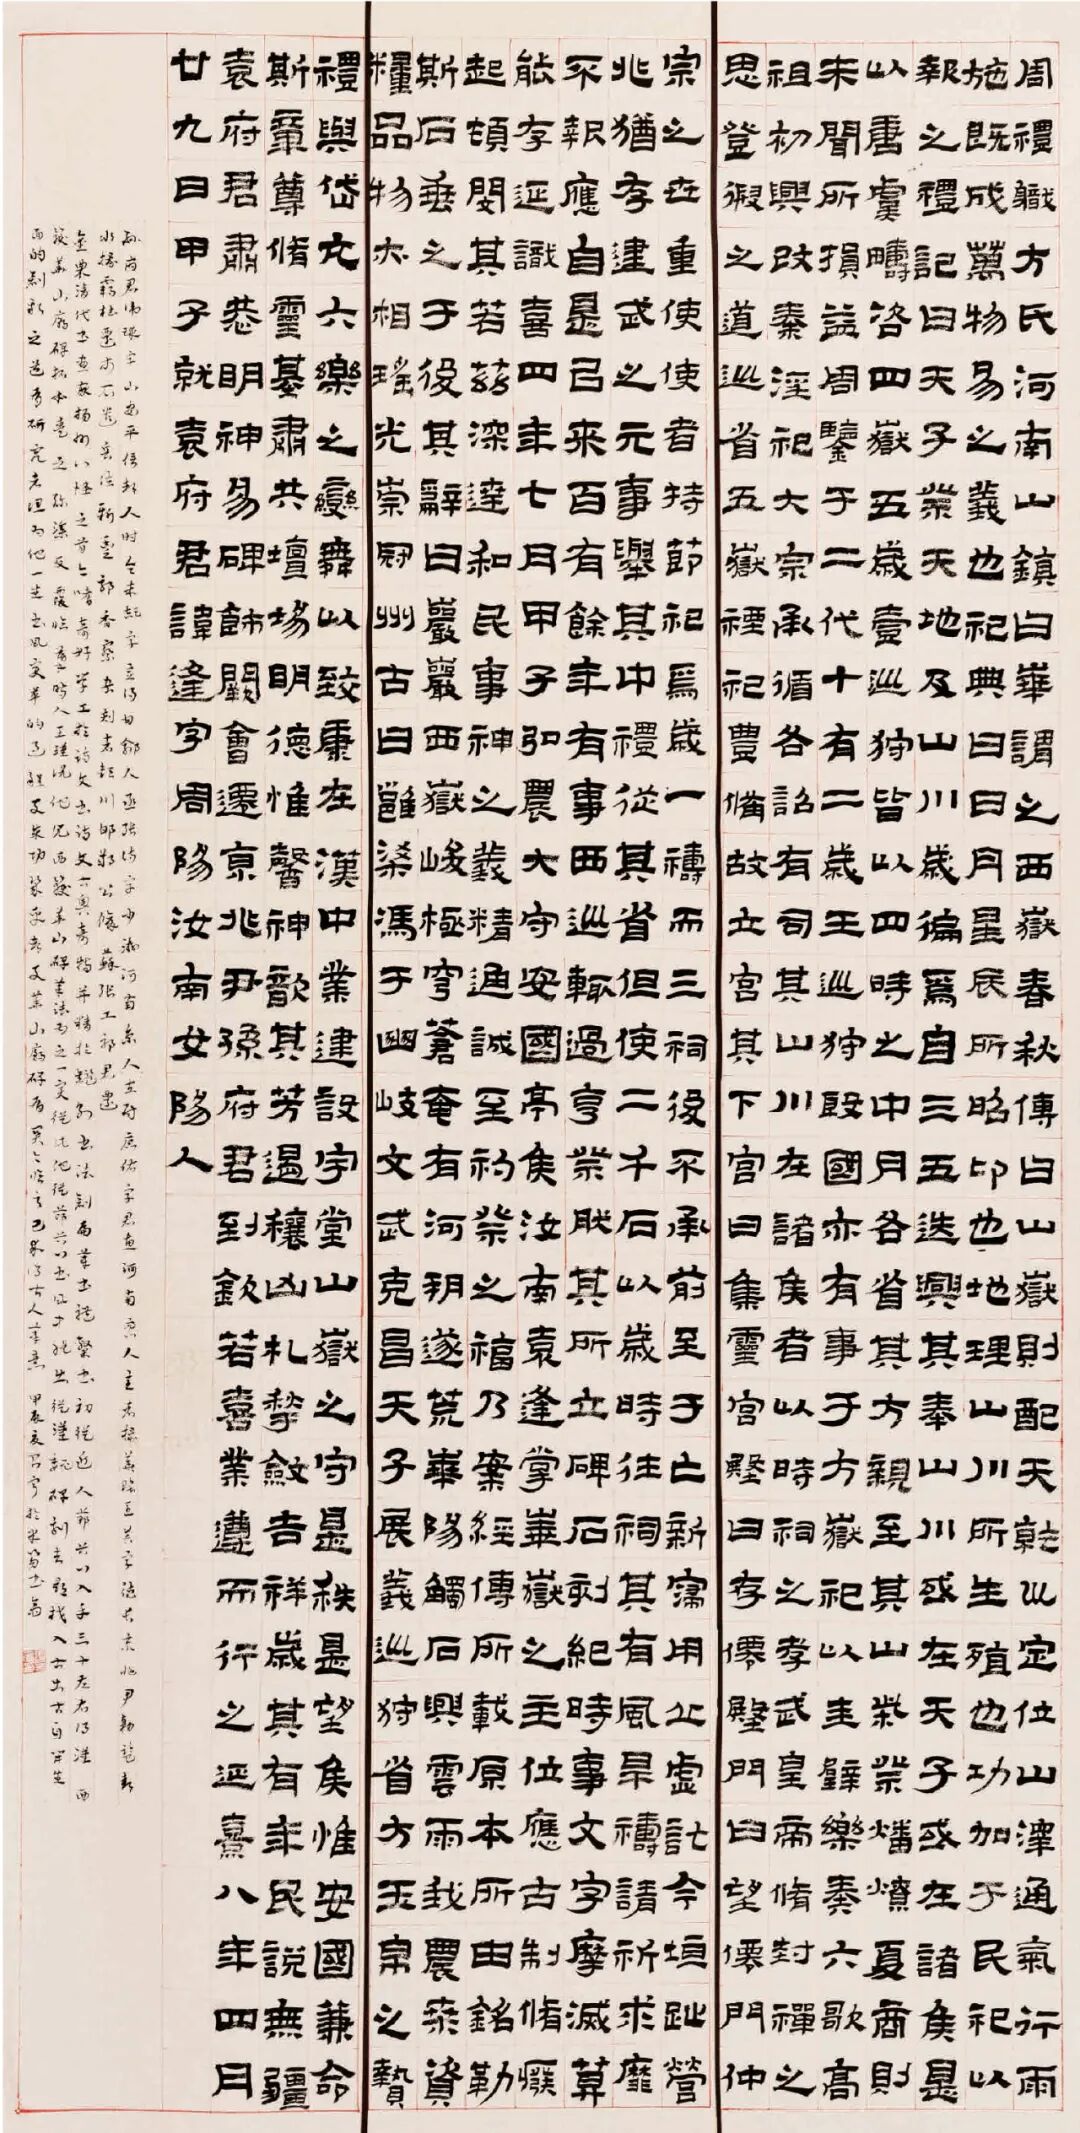 周禮職方氏河南山鎮曰華謂之西嶽春秋傳曰山嶽則配天乾巛定位山澤通氣行雨
施既成萬物易之義也祀典曰日月星辰所昭卬也地理山川所生殖也功加于民祀以
報之禮記曰天子祭天地及山川歲徧焉自三五迭興其奉山川或在天子或在諸侯是
以唐虞疇咨四嶽五歲壹巡狩皆以四時之中月各省其方親至其山柴祭燔燎夏商則
未聞所損益周鑒于二代十有二歲王巡狩殷國亦有事于方嶽祀以圭璧樂奏六歌高
祖初興改秦淫祀大宗承循各詔有司其山川在諸侯者以時祠之孝武皇帝脩封禪之
思登徦之道巡省五嶽禋祀豐備故立宮其下宮曰集靈宮殿曰存僊殿門曰望僊門仲
宗之世重使使者持節祀焉歲一禱而三祠後不承前至于亡新寖用丘虛訖今垣趾營
兆猶存建武之元事舉其中禮從其省但使二千石以歲時往祠其有風旱禱請祈求靡
不報應自是以來百有餘年有事西巡輒過亨祭然其所立碑石刻紀時事文字摩滅莫
能存延識喜四年七月甲子弘農大守安國亭侯汝南袁逢掌華嶽之主位應古制脩癈
起頓閔其若茲深達和民事神之義精通誠至礿祭之福乃案經傳所載原本所由銘勒
斯石垂之于後其辭曰巖巖西嶽峻極穹蒼奄有河朔遂荒華陽觸石興雲雨我農桑資
糧品物亦相瑤光崇冠州古曰雝梁馮于豳岐文武克昌天子展義巡狩省方玉帛之贄
禮與岱亢六樂之變舞以致康在漢中葉建設宇堂山嶽之守是秩是望侯惟安國兼命
斯章尊脩靈基肅共壇場明德惟馨神歆其芳遏穰凶札揫斂吉祥歲其有年民說無疆
袁府君肅恭明神易碑飾闕會遷京兆尹孫府君到欽若嘉業遵而行之延熹八年四月
廿九日甲子就袁府君諱逢字周陽汝南女陽人
孫府君諱璆字山安平信都人時令朱頡字宣得甘鄃人丞張昉字少游河南京人左尉唐佑字君惠河南密人主者掾華陰王萇字德長京兆尹勑監都
水掾霸杜遷市石遣書佐新豐郭香察書刻者潁川邯鄲公脩蘇張工郭君遷
金農清代書畫家揚州八怪之首
華山廟碑拓本